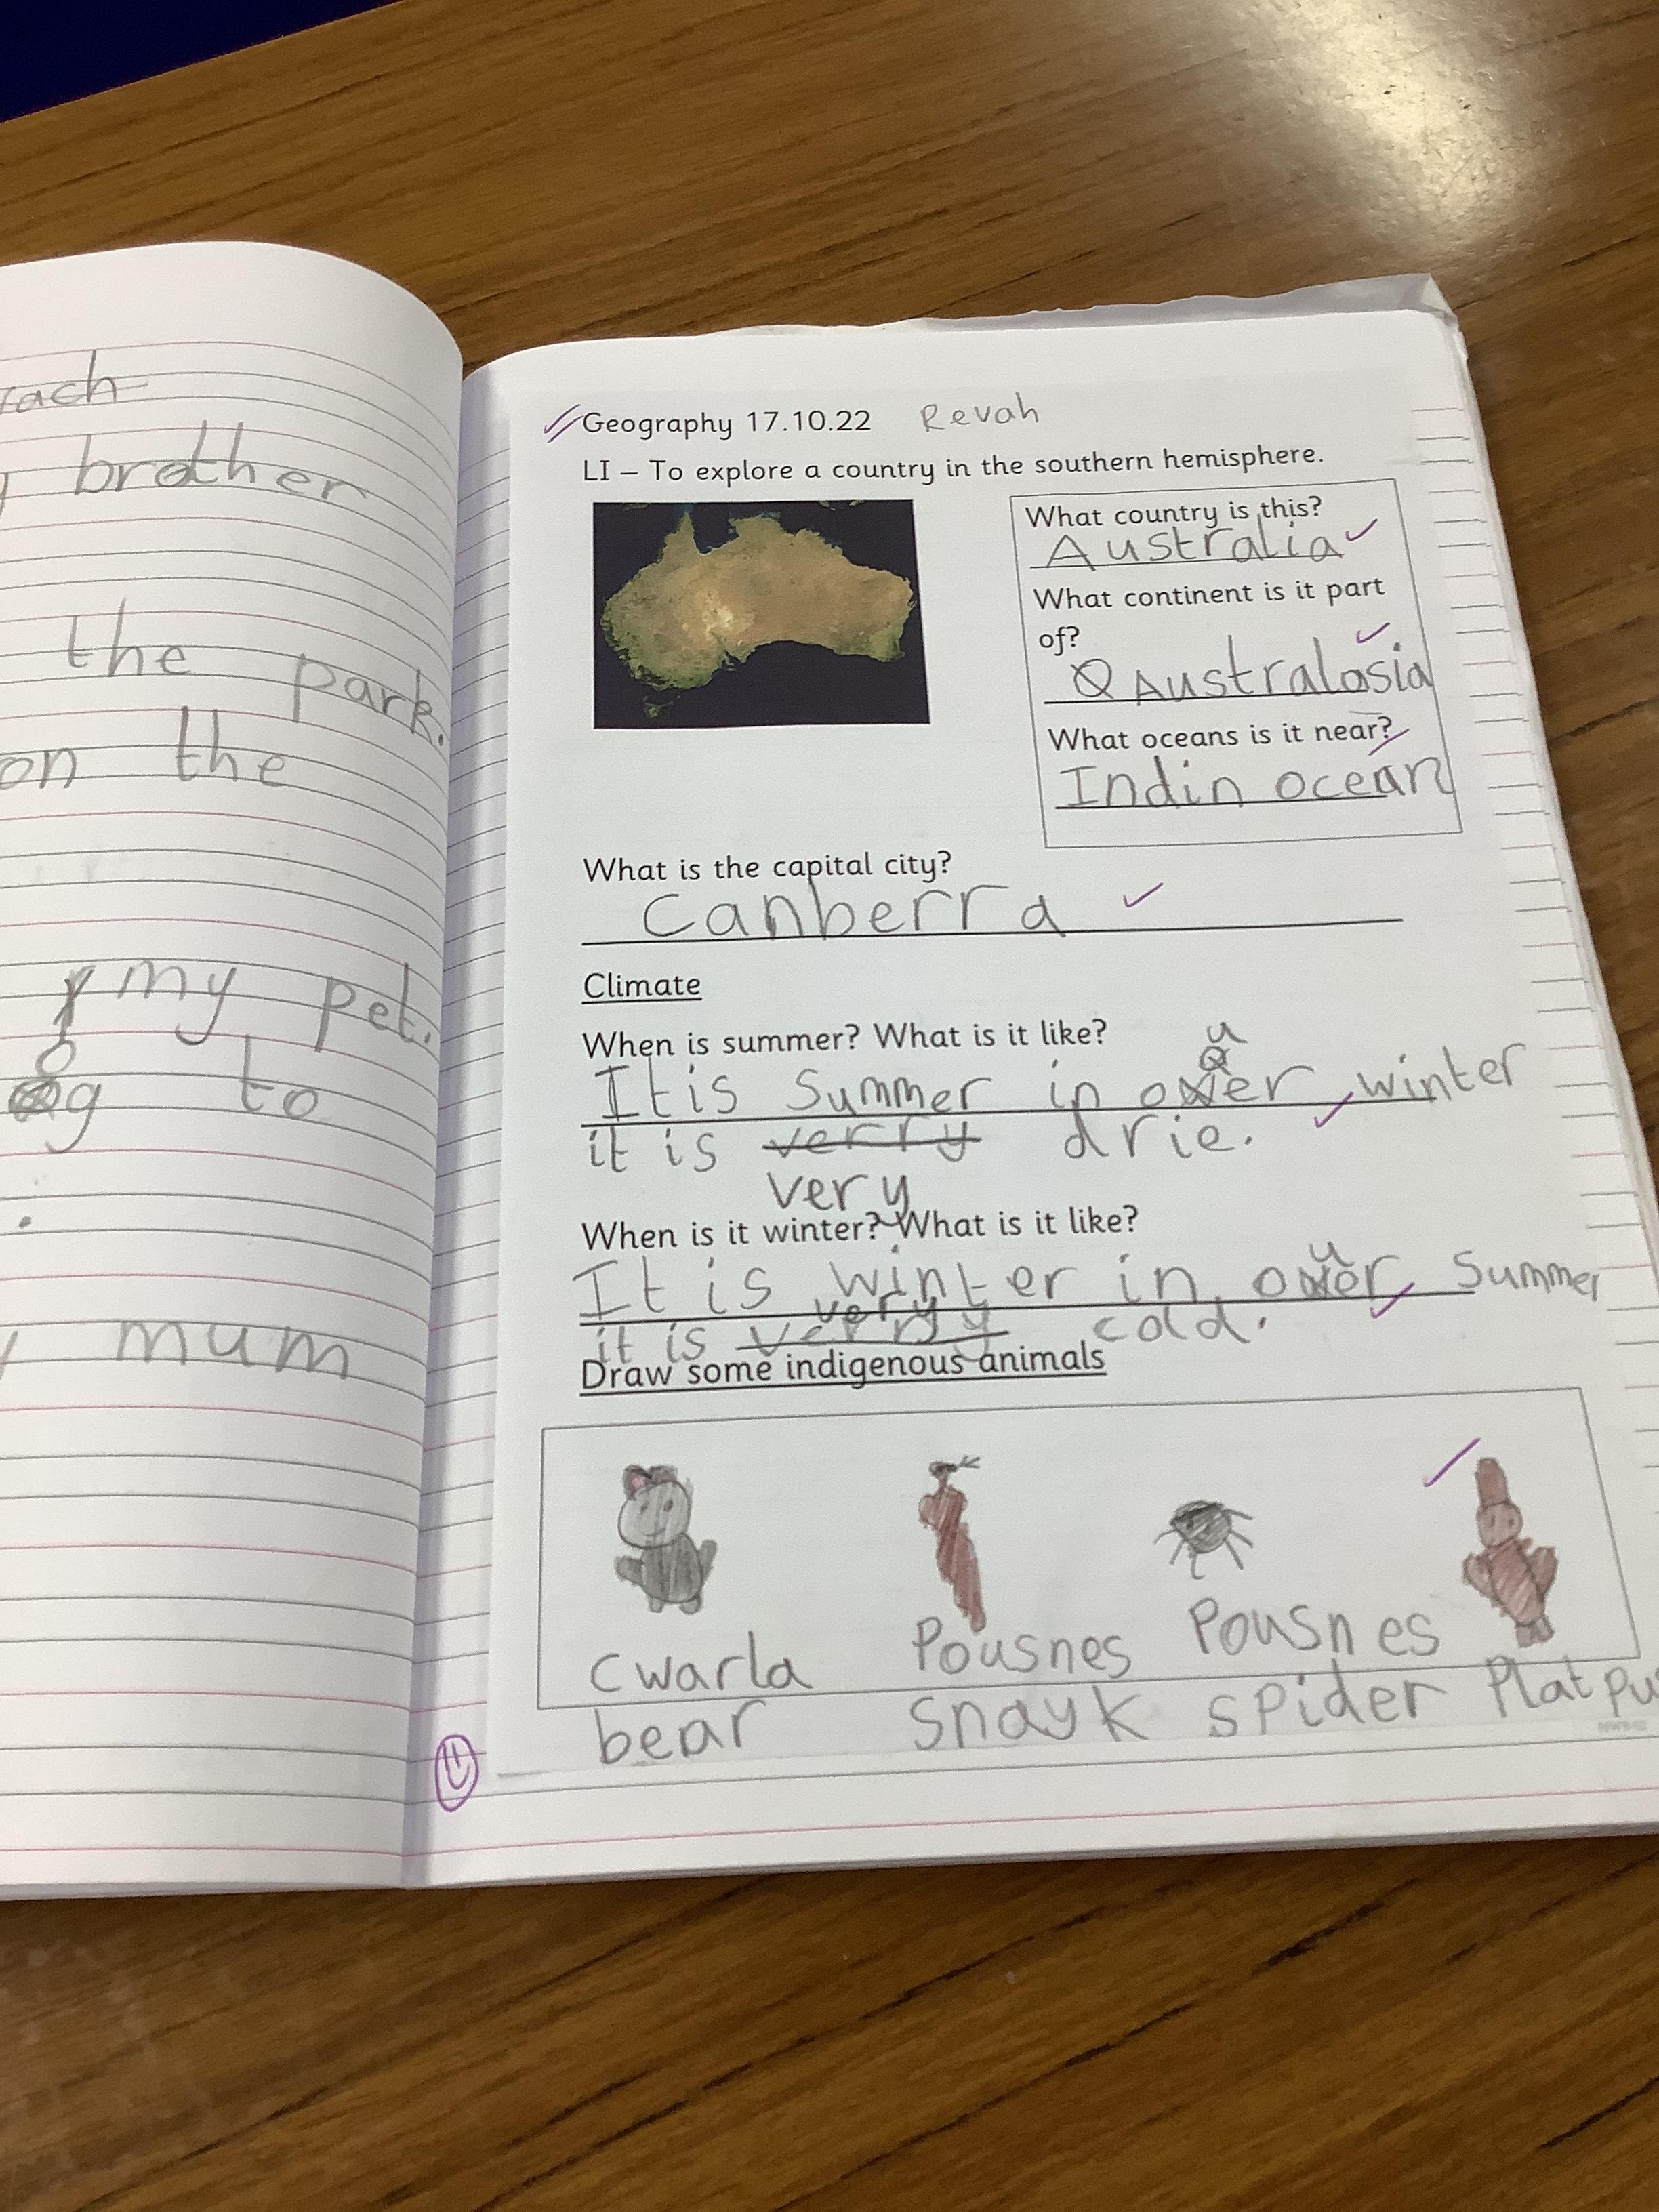 brother
the park.
on the
my pet.
to
mum
Geography 17.10.22 Revah
LI – To explore a country in the southern hemisphere.
What country is this?
Australia
What continent is it part
of?
Australasia
What oceans is it near?
Indin ocean
What is the capital city?
Canberra
Climate
When is summer? What is it like?
It is Summer in our winter
it is verry drie.
very
When is it winter? What is it like?
It is winter in our Summer
very
it is verry cold.
Draw some indigenous animals
cwarla Pousnes Pousnes
bear snayk spider Plat pu